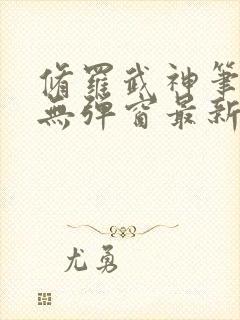 脩羅武神筆
無彈窗最新
尤勇